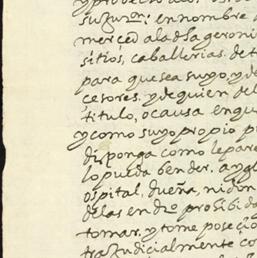 en nombre d
merced ala dha geroni
sitios, caballerias. de t
para que sea suyo, y de
cesores. y de quien del
titulo, o causa en qu
y como suyo propio p
disponga como le pare
lo pueda bender. a ygl
ospital, dueña, ni don
delas en dro prohibida
tomar, y tome poseçio
trajudicialmente co